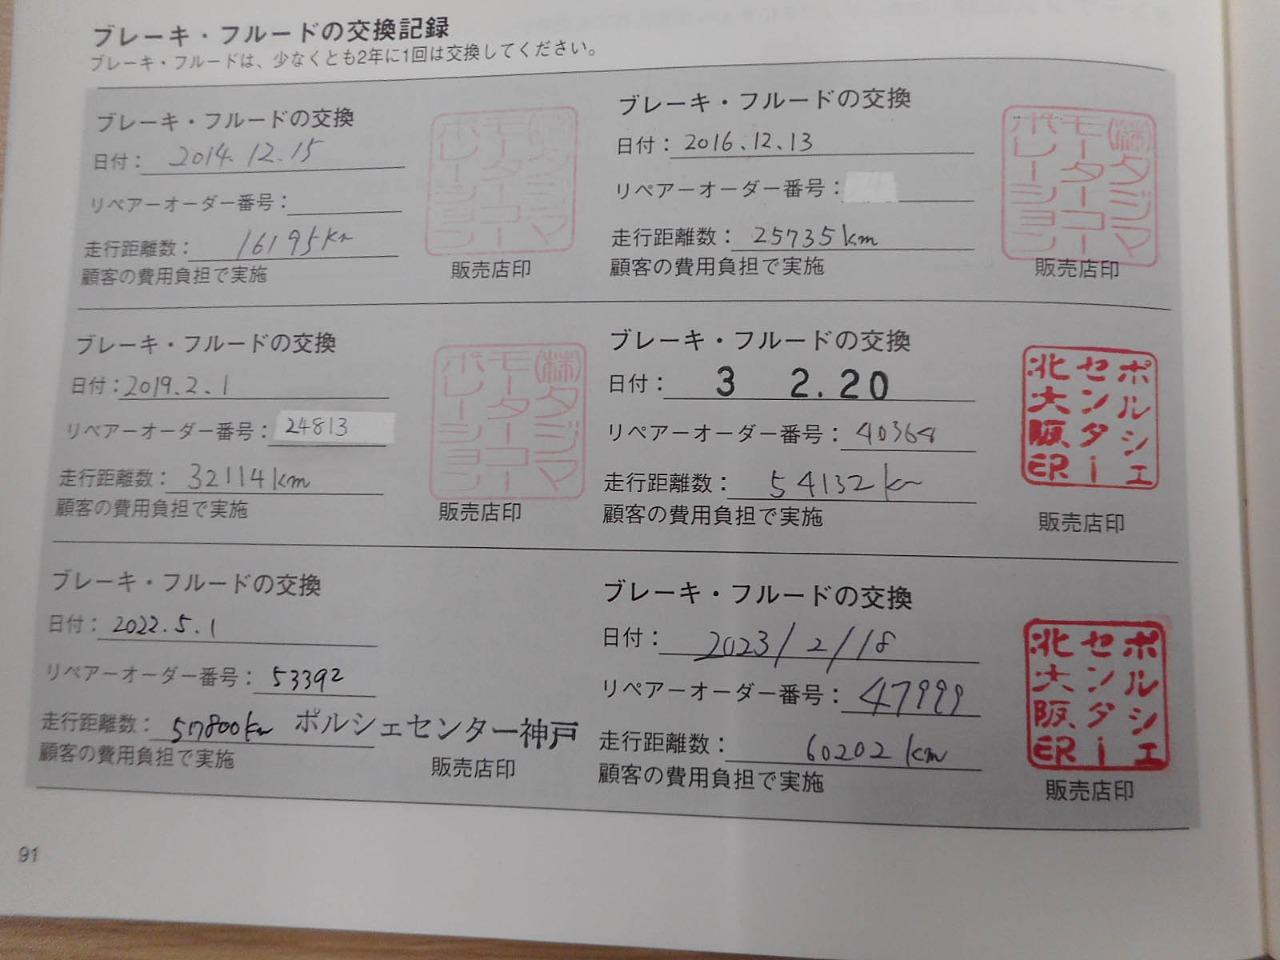 ブレーキ・フルードの交換記録
ブレーキ・フルードは、少なくとも2年に1回は交換してください。
ブレーキ・フルードの交換
日付：2014.12.15
リペアーオーダー番号：
走行距離数：16195km
顧客の費用負担で実施
㈱タジマモーターコーポレーション
販売店印
ブレーキ・フルードの交換
日付：2016.12.13
リペアーオーダー番号：
走行距離数：25735km
顧客の費用負担で実施
㈱タジマモーターコーポレーション
販売店印
ブレーキ・フルードの交換
日付：2019.2.1
リペアーオーダー番号：24813
走行距離数：32114km
顧客の費用負担で実施
㈱タジマモーターコーポレーション
販売店印
ブレーキ・フルードの交換
日付：3 2.20
リペアーオーダー番号：40368
走行距離数：54132km
顧客の費用負担で実施
ポルシェセンター北大阪ER
販売店印
ブレーキ・フルードの交換
日付：2022.5.1
リペアーオーダー番号：53392
走行距離数：57800km
ポルシェセンター神戸
顧客の費用負担で実施
販売店印
ブレーキ・フルードの交換
日付：2023/2/18
リペアーオーダー番号：47999
走行距離数：60202km
顧客の費用負担で実施
ポルシェセンター北大阪ER
販売店印
91